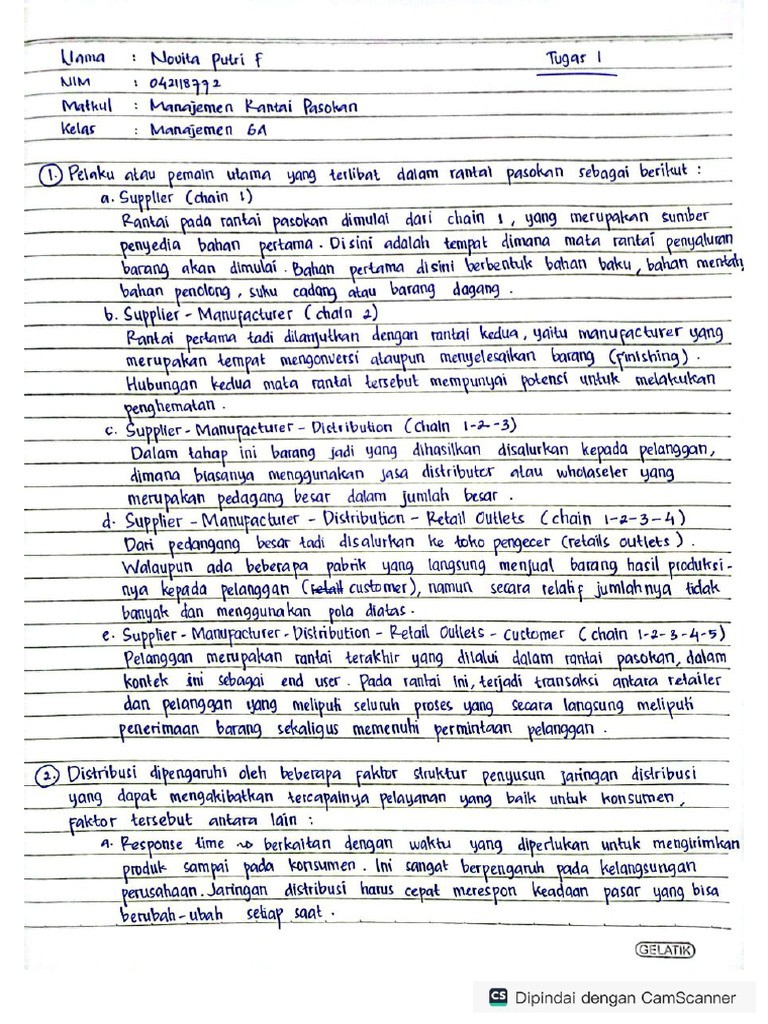 Nama : Novita Putri F
Tugas 1
NIM : 042118772
Matkul : Manajemen Rantai Pasokan
Kelas : Manajemen 6A
1. Pelaku atau pemain utama yang terlibat dalam rantai pasokan sebagai berikut :
a. Supplier (chain 1)
Rantai pada rantai pasokan dimulai dari chain 1, yang merupakan sumber
penyedia bahan pertama. Disini adalah tempat dimana mata rantai penyaluran
barang akan dimulai. Bahan pertama disini berbentuk bahan baku, bahan mentah,
bahan penolong, suku cadang atau barang dagang.
b. Supplier - Manufacturer (chain 2)
Rantai pertama tadi dilanjutkan dengan rantai kedua, yaitu manufacturer yang
merupakan tempat mengonversi ataupun menyelesaikan barang (finishing).
Hubungan kedua mata rantai tersebut mempunyai potensi untuk melakukan
penghematan.
c. Supplier - Manufacturer - Distribution (chain 1-2-3)
Dalam tahap ini barang jadi yang dihasilkan disalurkan kepada pelanggan,
dimana biasanya menggunakan jasa distributor atau wholaseler yang
merupakan pedagang besar dalam jumlah besar.
d. Supplier - Manufacturer - Distribution - Retail Outlets (chain 1-2-3-4)
Dari pedangang besar tadi disalurkan ke toko pengecer (retails outlets).
Walaupun ada beberapa pabrik yang langsung menjual barang hasil produksi-
nya kepada pelanggan (retail customer), namun secara relatif jumlahnya tidak
banyak dan menggunakan pola diatas.
e. Supplier - Manufacturer - Distribution - Retail Outlets - Customer (chain 1-2-3-4-5)
Pelanggan merupakan rantai terakhir yang dilalui dalam rantai pasokan, dalam
kontek ini sebagai end user. Pada rantai ini, terjadi transaksi antara retailer
dan pelanggan yang meliputi seluruh proses yang secara langsung meliputi
penerimaan barang sekaligus memenuhi permintaan pelanggan.
2. Distribusi dipengaruhi oleh beberapa faktor struktur penyusun jaringan distribusi
yang dapat mengakibatkan tercapainya pelayanan yang baik untuk konsumen,
faktor tersebut antara lain :
a. Response time ~> berkaitan dengan waktu yang diperlukan untuk mengirimkan
produk sampai pada konsumen. Ini sangat berpengaruh pada kelangsungan
perusahaan. Jaringan distribusi harus cepat merespon keadaan pasar yang bisa
berubah-ubah setiap saat.
GELATIK
CS Dipindai dengan CamScanner